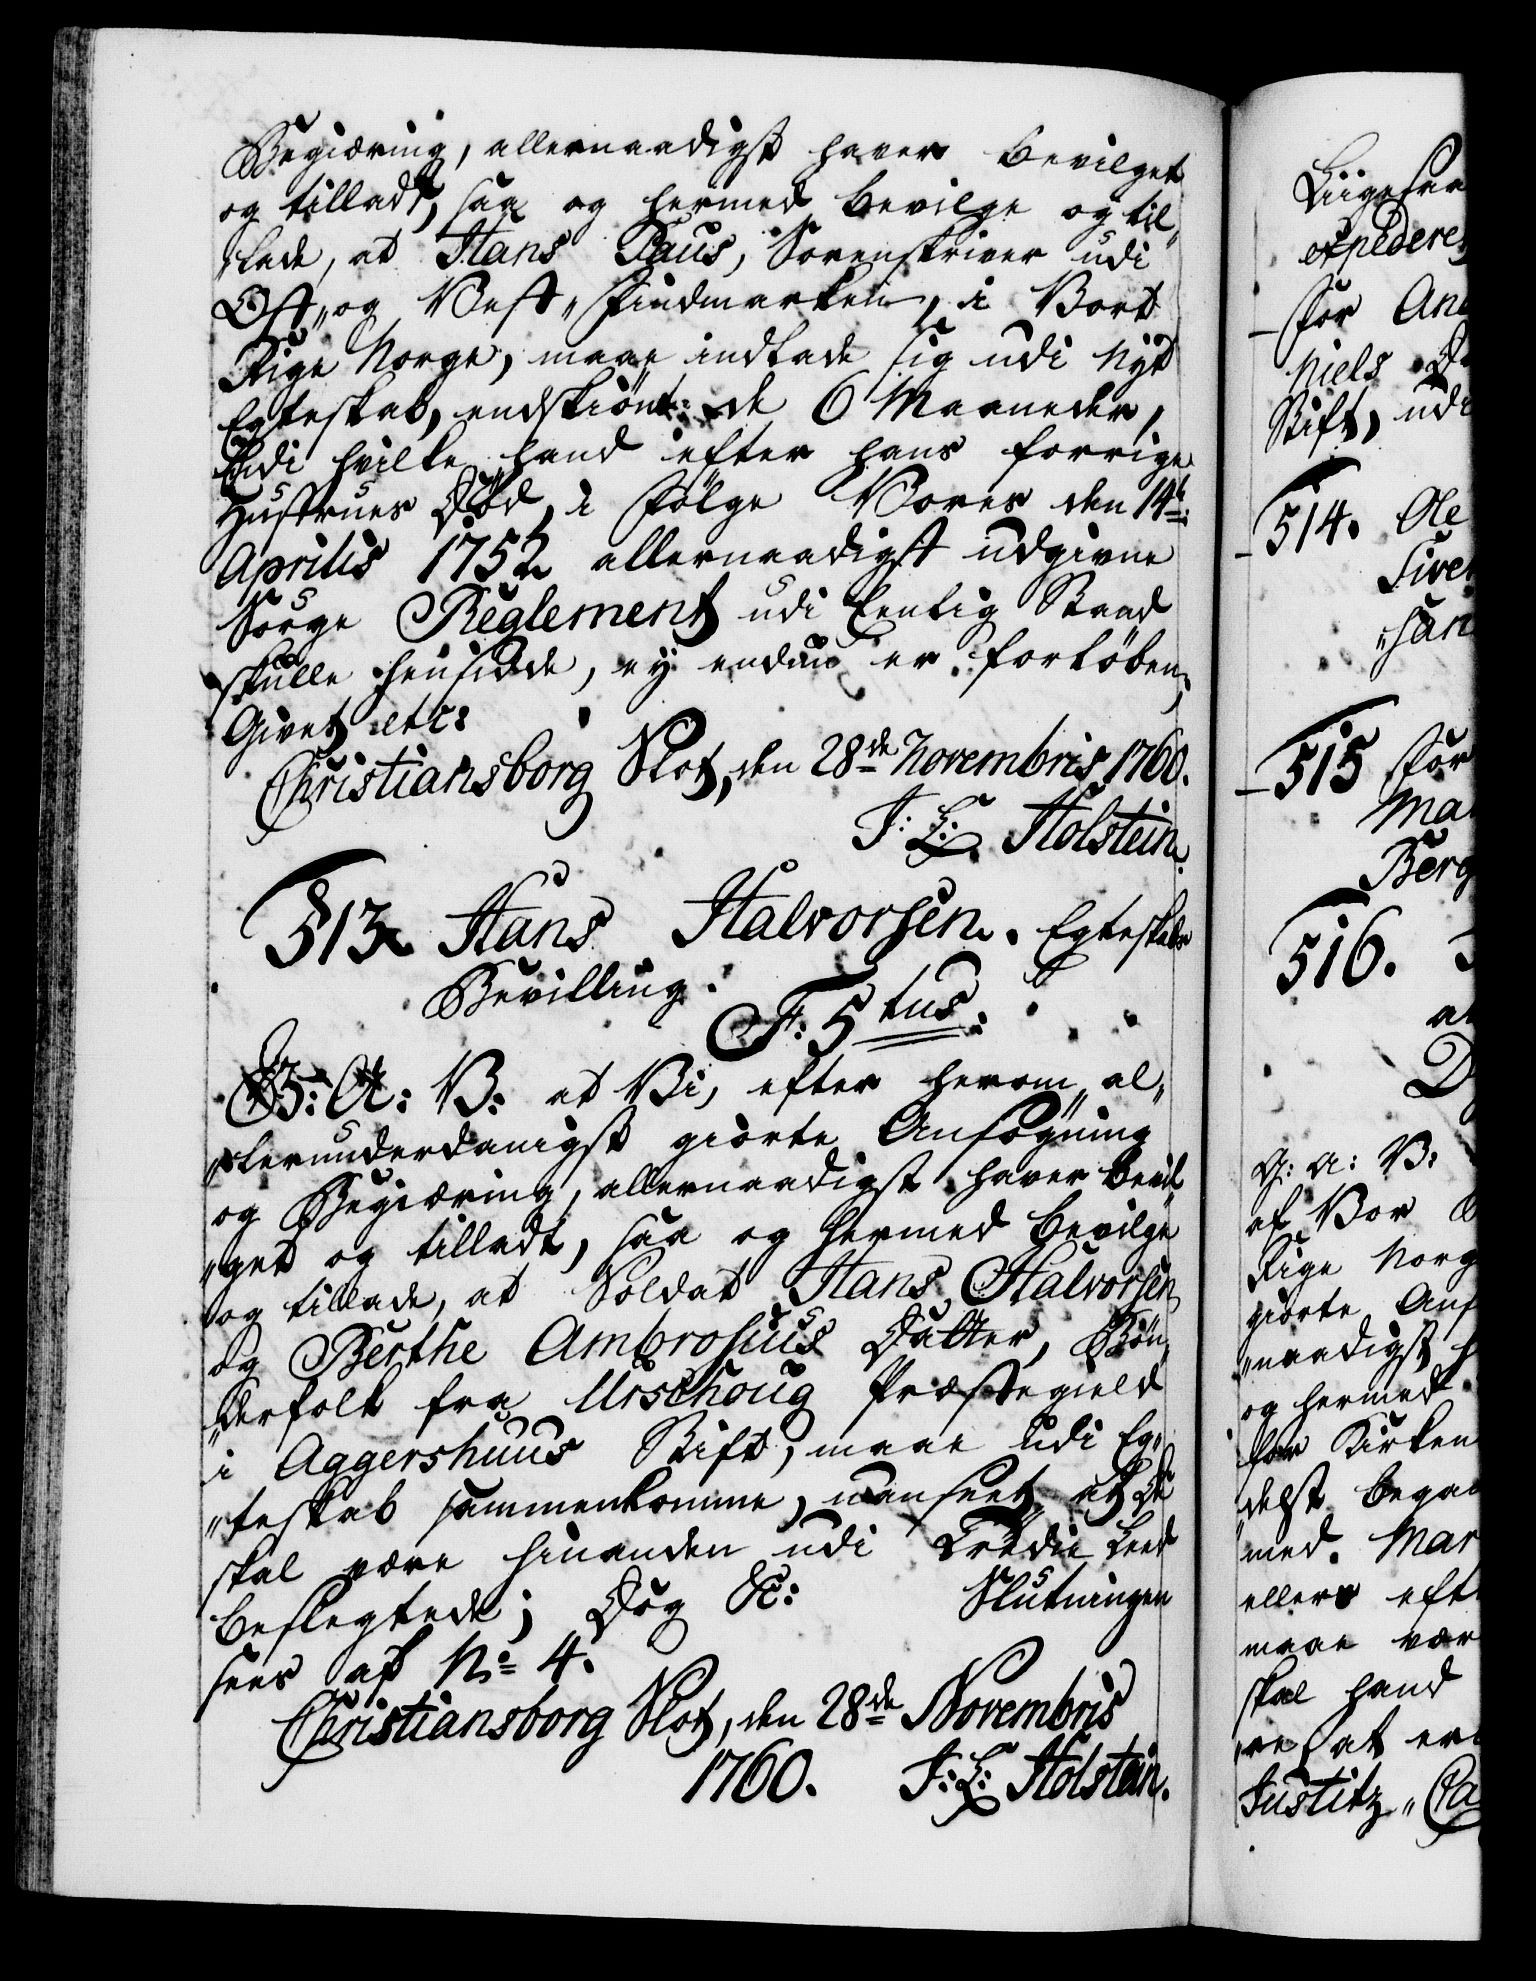 Begiæring, allernaadigst haver bevilget
og tilladt, saa og hermed bevilge og til„
„lade, at Hans Paus, Sorenskriver udi
Ost„ og Vest„Findmarken, i Vort
Rige Norge, maae indlade sig udi nyt
Egteskab, endskiönt de 6 Maaneder,
Udi hvilke hand efter hans forrige
Hustrues Död, i Fölge Vores den 14de
Aprilis 1752 allernaadigst udgivne
Sorge Reglement udi Eenlig Stand
skulle hensidde, ey endnu er forlöben;
Givet etc:
Christiansborg Slot, den 28de Novembris 1760.
J: L: Holstein.
513. Hans Halvorsen. Egteskabs
Bevilling.
F: 5tus.
G: A: V: at Vi, efter herom al„
„lerunderdanigst giorte Ansögning
og Begiæring, allernaadigst haver bevil„
„get og tilladt, saa og hermed bevilge
og tillade, at Soldat Hans Halvorsen
og Berthe Ambrosius Datter, Bön„
„derfolk fra Urschoug Præstegield
i Aggershuus Stift, maae udi Eg„
„teskab sammenkomme, uanseet at de
skal være hinanden udi Tredie Leed
beslegtede; Dog &c: Slutningen
sees af No 4.
Christiansborg Slot, den 28de Novembris
1760. J: L: Holstein.
Liigesaa
expedere
for
Niels
Stift, udi
514. Ole
515 For
Ma
Berg
516.
G: A: V:
af Vor
Rige Norg
giorte Ans
„naadigst h
og hermed
for Kirken
med. Mar
ellers eft
maae vær
skal hand
Justitz„